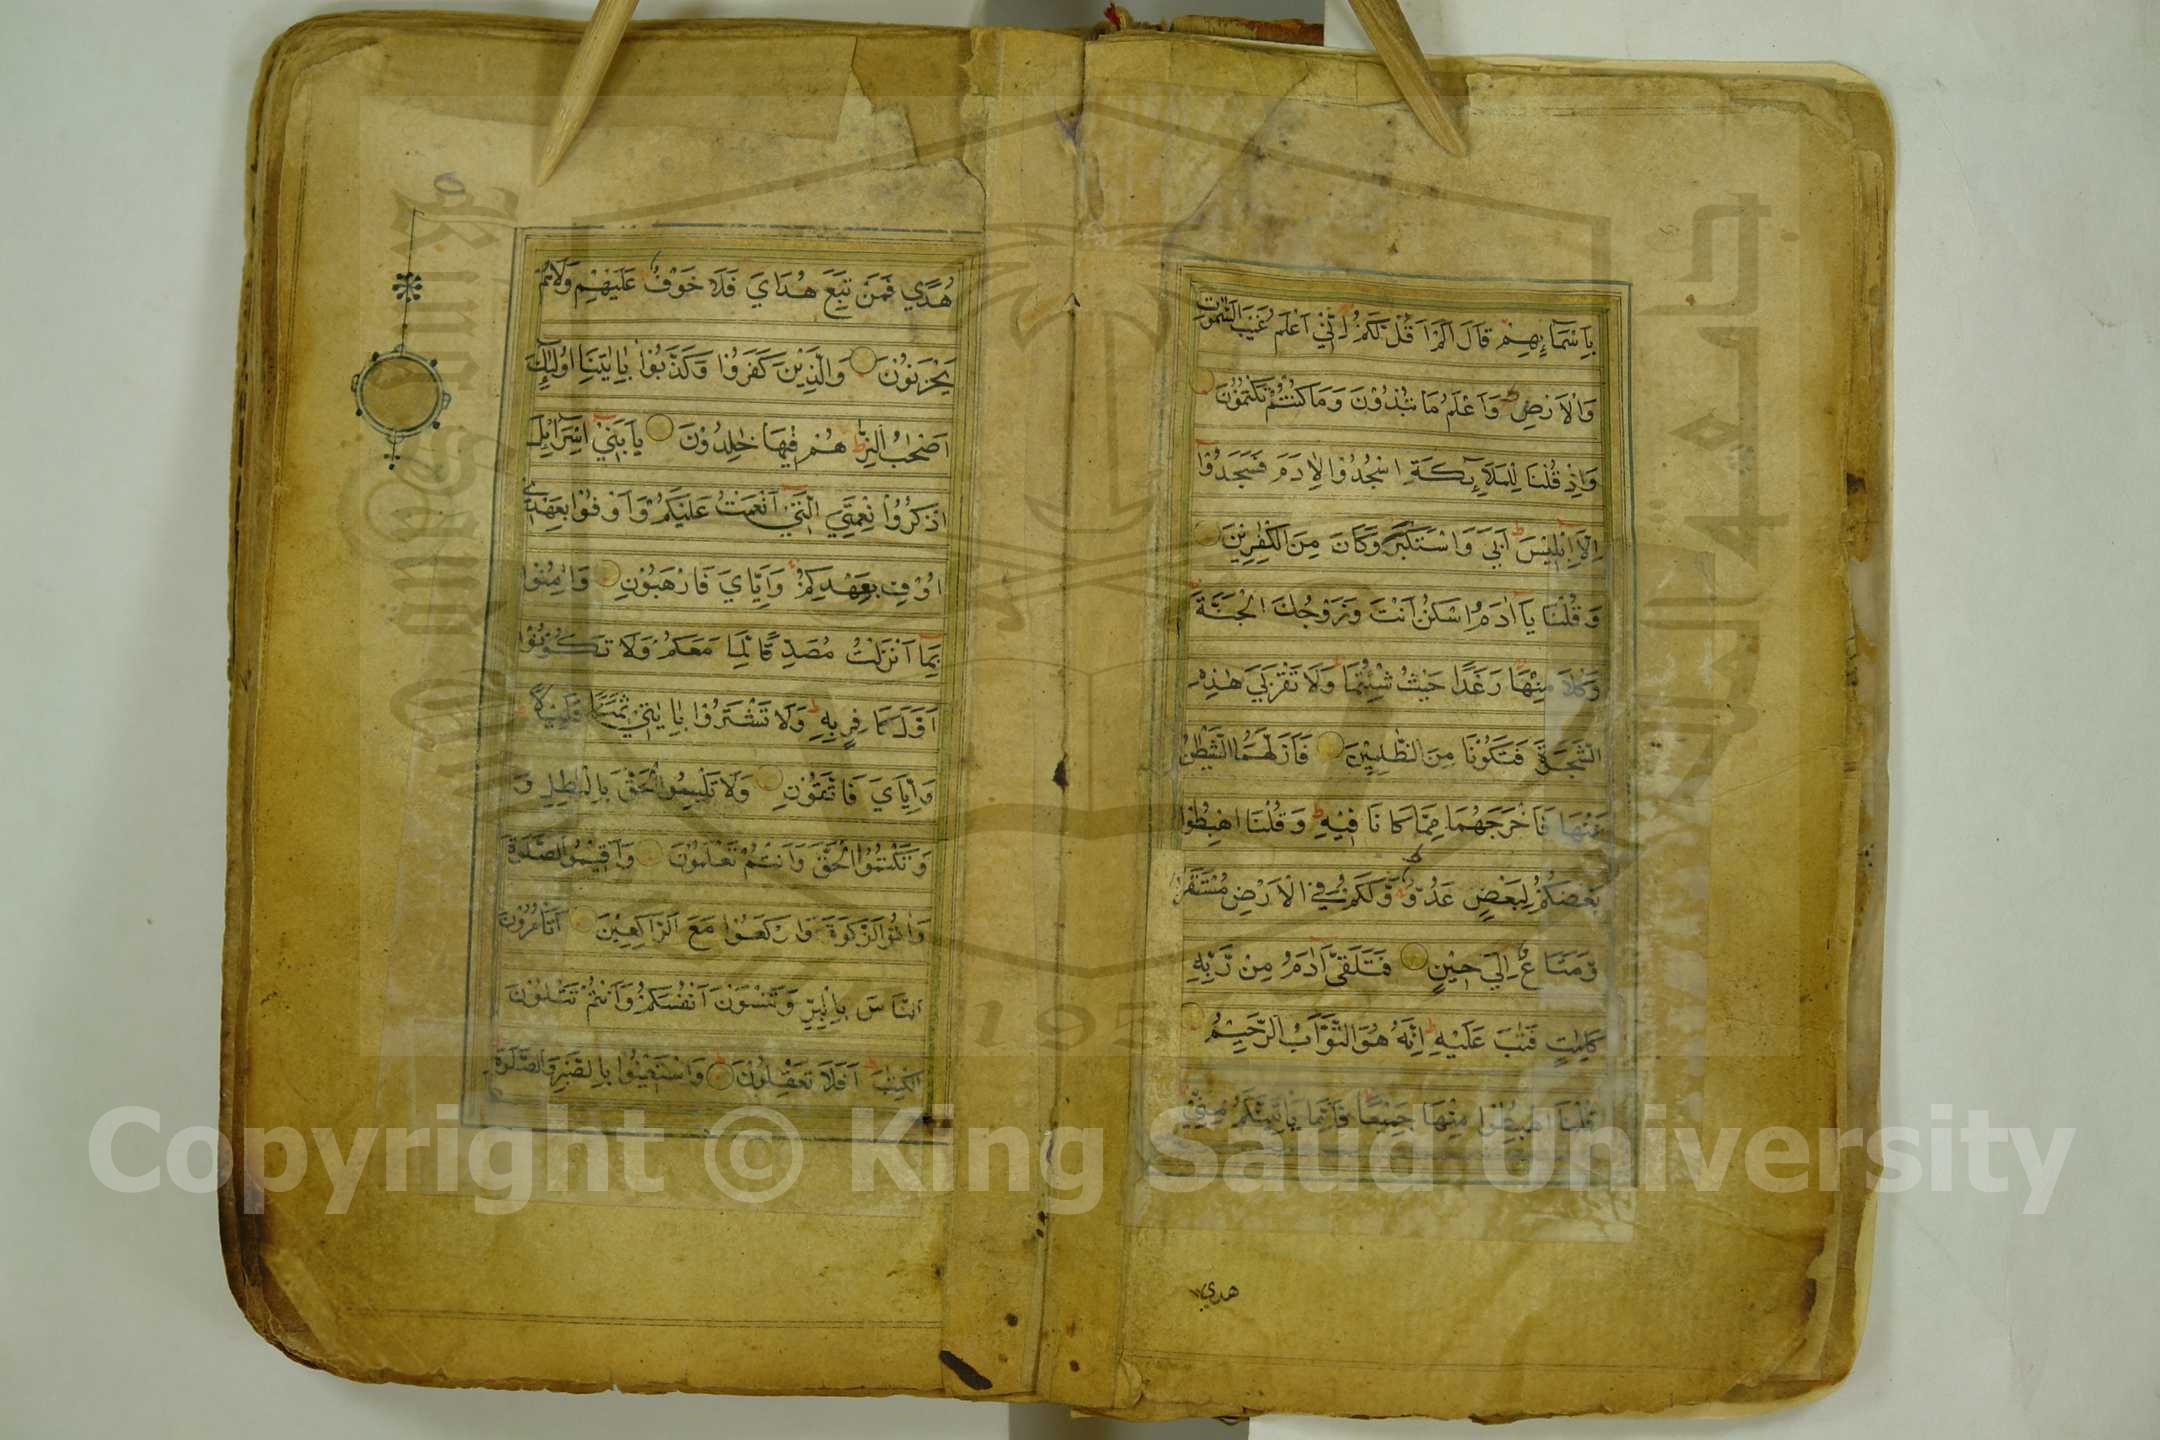 بِاَسْمَآئِهِمْ قَالَ اَلَمْ اَقُلْ لَكُمْ اِنِّيْ اَعْلَمُ غَيْبَ السَّمٰوٰتِ
وَالْاَرْضِ وَاَعْلَمُ مَا تُبْدُوْنَ وَمَا كُنْتُمْ تَكْتُمُوْنَ
وَاِذْ قُلْنَا لِلْمَلَآئِكَةِ اسْجُدُوْا لِاٰدَمَ فَسَجَدُوْٓا
اِلَّآ اِبْلِيْسَ اَبٰى وَاسْتَكْبَرَ وَكَانَ مِنَ الْكٰفِرِيْنَ
وَقُلْنَا يَآ اٰدَمُ اسْكُنْ اَنْتَ وَزَوْجُكَ الْجَنَّةَ
وَكُلَا مِنْهَا رَغَدًا حَيْثُ شِئْتُمَا وَلَا تَقْرَبَا هٰذِهِ
الشَّجَرَةَ فَتَكُوْنَا مِنَ الظّٰلِمِيْنَ فَاَزَلَّهُمَا الشَّيْطٰنُ
عَنْهَا فَاَخْرَجَهُمَا مِمَّا كَانَا فِيْهِ وَقُلْنَا اهْبِطُوْا
بَعْضُكُمْ لِبَعْضٍ عَدُوٌّ وَلَكُمْ فِي الْاَرْضِ مُسْتَقَرٌّ
وَّمَتَاعٌ اِلٰى حِيْنٍ فَتَلَقّٰٓى اٰدَمُ مِنْ رَّبِّهٖ
كَلِمٰتٍ فَتَابَ عَلَيْهِ اِنَّهُ هُوَ التَّوَّابُ الرَّحِيْمُ
قُلْنَا اهْبِطُوْا مِنْهَا جَمِيْعًا فَاِمَّا يَاْتِيَنَّكُمْ مِنِّيْ
هدي
هُدًي فَمَنْ تَبِعَ هُدَايَ فَلَا خَوْفٌ عَلَيْهِمْ وَلَا هُمْ
يَحْزَنُوْنَ وَالَّذِيْنَ كَفَرُوْا وَكَذَّبُوْا بِاٰيٰتِنَا اُولٰٓئِكَ
اَصْحٰبُ النَّارِ هُمْ فِيْهَا خٰلِدُوْنَ يَا بَنِيْٓ اِسْرَآئِلَ
اذْكُرُوْا نِعْمَتِيَ الَّتِيْٓ اَنْعَمْتُ عَلَيْكُمْ وَاَوْفُوْا بِعَهْدِيْٓ
اُوْفِ بِعَهْدِكُمْ وَاِيَّايَ فَارْهَبُوْنِ وَاٰمِنُوْا
بِمَآ اَنْزَلْتُ مُصَدِّقًا لِمَا مَعَكُمْ وَلَا تَكُوْنُوْٓا
اَوَّلَ كَافِرٍ بِهٖ وَلَا تَشْتَرُوْا بِاٰيٰتِيْ ثَمَنًا قَلِيْلًا
وَاِيَّايَ فَاتَّقُوْنِ وَلَا تَلْبِسُوا الْحَقَّ بِالْبَاطِلِ وَ
وَتَكْتُمُوا الْحَقَّ وَاَنْتُمْ تَعْلَمُوْنَ وَاَقِيْمُوا الصَّلٰوةَ
وَاٰتُوا الزَّكٰوةَ وَارْكَعُوْا مَعَ الرَّاكِعِيْنَ اَتَاْمُرُوْنَ
النَّاسَ بِالْبِرِّ وَتَنْسَوْنَ اَنْفُسَكُمْ وَاَنْتُمْ تَتْلُوْنَ
الْكِتٰبَ اَفَلَا تَعْقِلُوْنَ وَاسْتَعِيْنُوْا بِالصَّبْرِ وَالصَّلٰوةِ
Copyright © King Saud University
King Saud University
جامعة الملك سعود